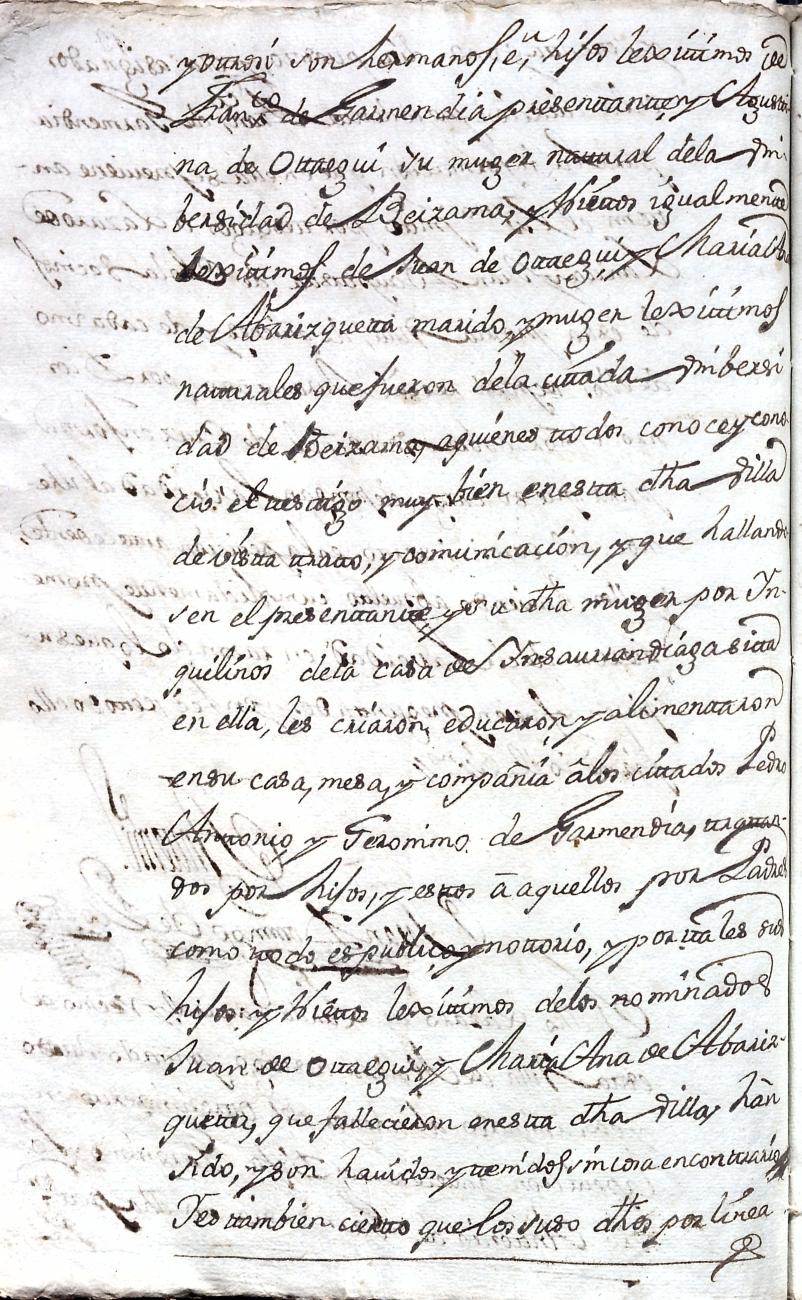 y ottrosi son hermanos, e, hijos lexittimos de
Fran.co de Garmendia presenttantte, y Agusti-
na de Ottaegui su muger nattural dela Vni
bersidad de Beizama, y Niettos igualmentte
lexittimos de Juan de Ottaegui, y Maria Ana
de Abarizquetta marido, y muger lexittimos
natturales que fueron dela cittada Vnibersi
dad de Beizama, a quienes ttodos conoce y cono
ció el testtigo muy bien en estta dha Villa
de vistta tratto, y comunicación, y que halland
sen el presenttantte y su dha muger por Yn-
quilinos dela casa de Ynsaurrandiaga sitta
en ella, les criaron, educaron y alimenttaron
en su casa, mesa, y compañia à los cittados Pedro
Anttonio y Geronimo de Garmendia, trattan-
dos por hijos, y esttos à aquellos por Padres
como ttodo es publico y nottorio, y por tales sus
hijos: y Niettos lexittimos delos nominados
Juan de Ottaegui, y Maria Ana de Abariz-
quetta, que fallecieron en estta dha Villa, hàn
sido, y son havidos y ttenidos sin cosa en conttrario
Y es ttambien ciertto que los suso dhos por linea